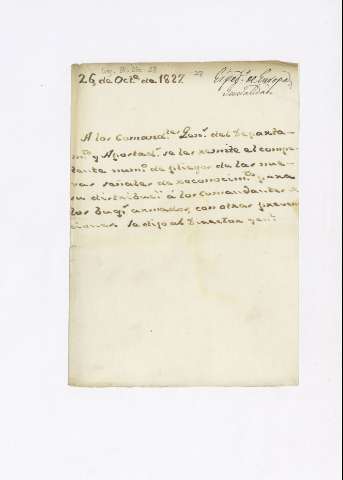 26, de Octe. de 1827
27
Expedte. de Europa
A los Comandtes. Gens. del Departa-
mto. y Apostads. se les remite el compe-
tente numo. de pliegos de las nue-
vas señales de reconocimto. para
su distribucn. á los Comandantes de
los buqs. armados, con otras preven-
ciones. Se dijo al Director genl.